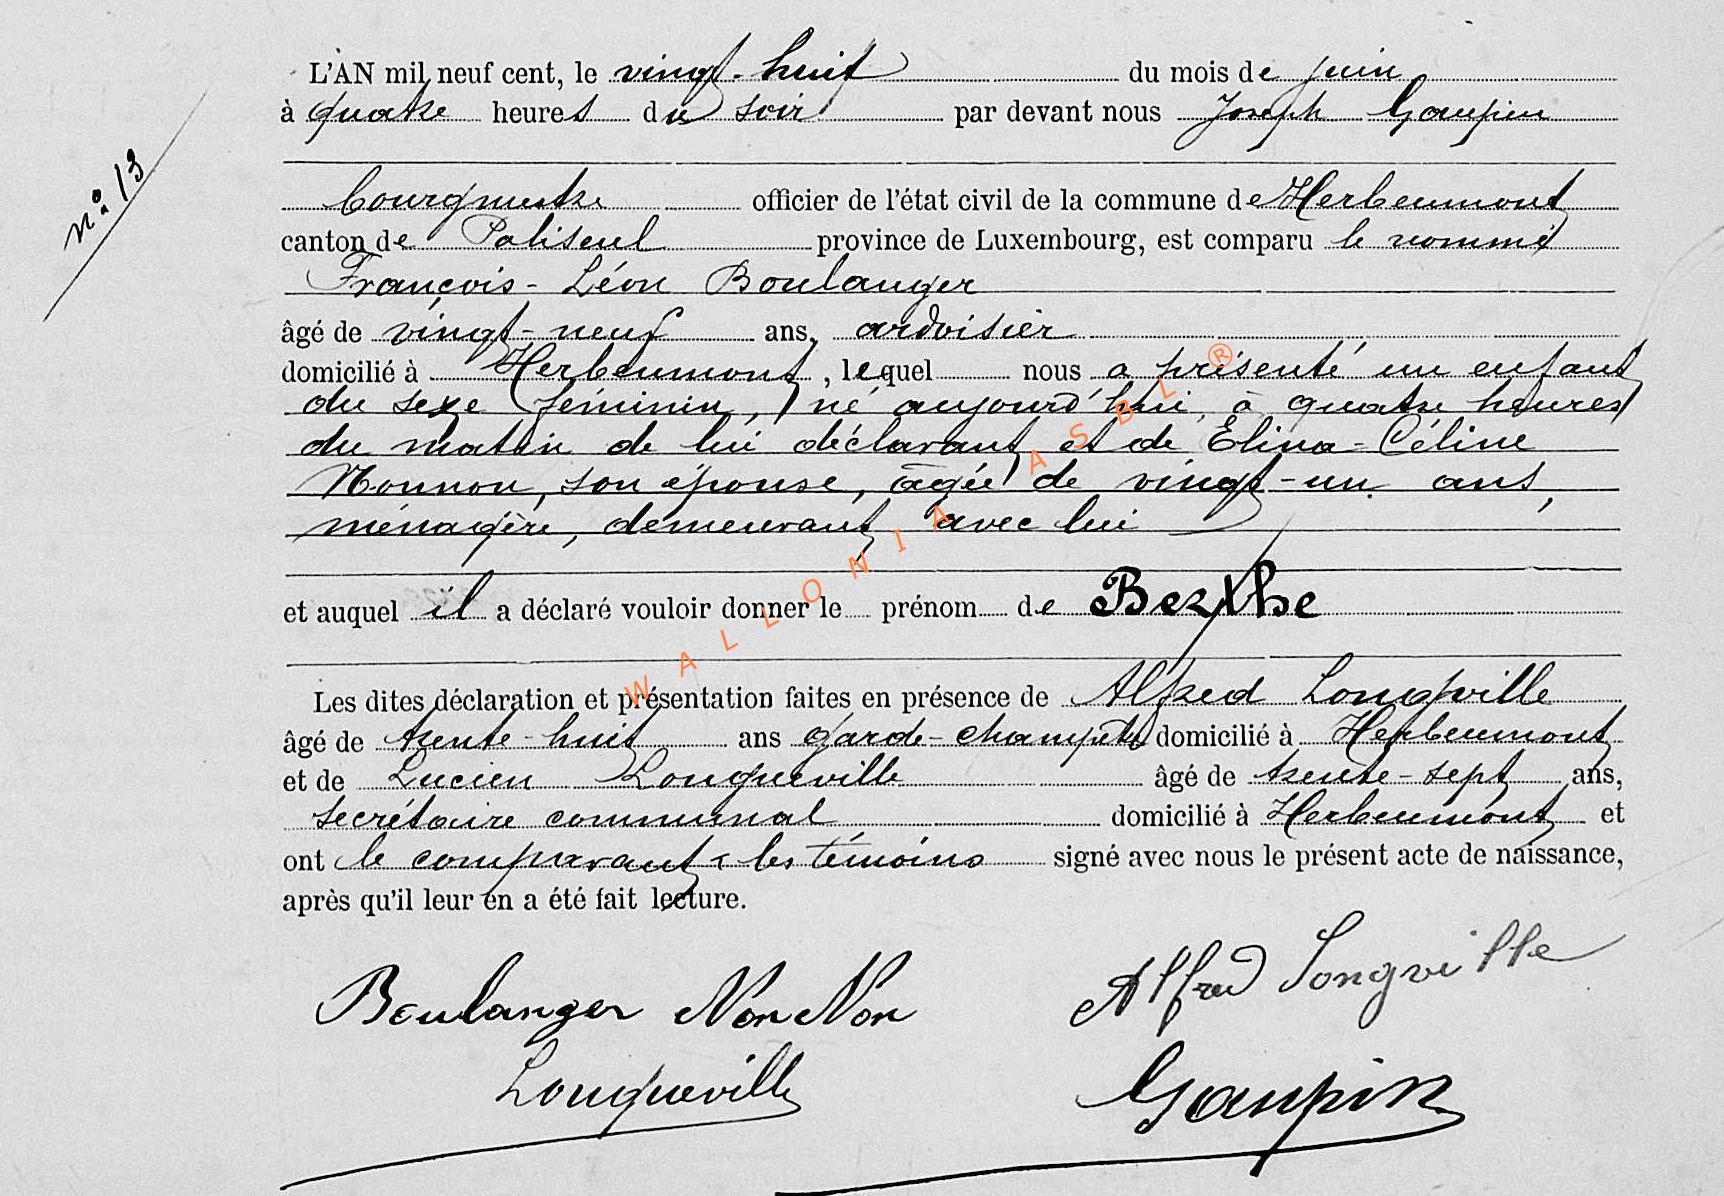 L'AN mil neuf cent, le vingt-huit du mois de juin
à quatre heures du soir par devant nous Joseph Gaupin
n° 13
bourgmestre officier de l'état civil de la commune de Herbeumont
canton de Paliseul province de Luxembourg, est comparu le nommé
François-Léon Boulanger
âgé de vingt-neuf ans, ardoisier
domicilié à Herbeumont, lequel nous a présenté un enfant
du sexe féminin, né aujourd'hui, à quatre heures
du matin de lui déclarant et de Elina-Céline
Nonnon, son épouse, âgée de vingt-un ans,
ménagère, demeurant avec lui
et auquel il a déclaré vouloir donner le prénom de Berthe
Les dites déclaration et présentation faites en présence de Alfred Longville
âgé de trente-huit ans garde-champêtre domicilié à Herbeumont
et de Lucien Longueville âgé de trente-sept ans,
secrétaire communal domicilié à Herbeumont et
ont le comparant & les témoins signé avec nous le présent acte de naissance,
après qu'il leur en a été fait lecture.
Boulanger NonNon Alfred Longville
Longueville Gaupin
WALLONIA ASBL ®